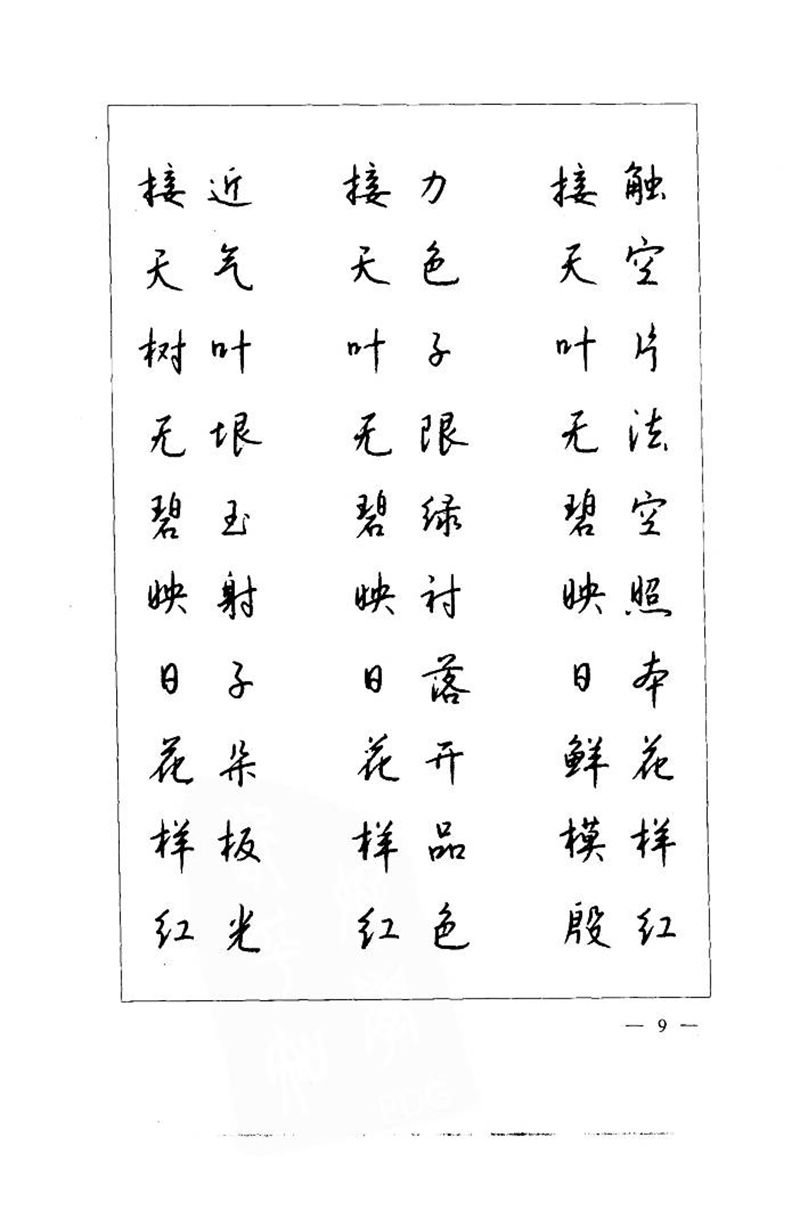 接近 接力 接触
天气 天色 天空
树叶 叶子 叶片
无垠 无限 无法
碧玉 碧绿 碧空
映射 映衬 映照
日子 日落 日本
花朵 花开 鲜花
样板 样品 模样
红光 红色 殷红
— 9 —